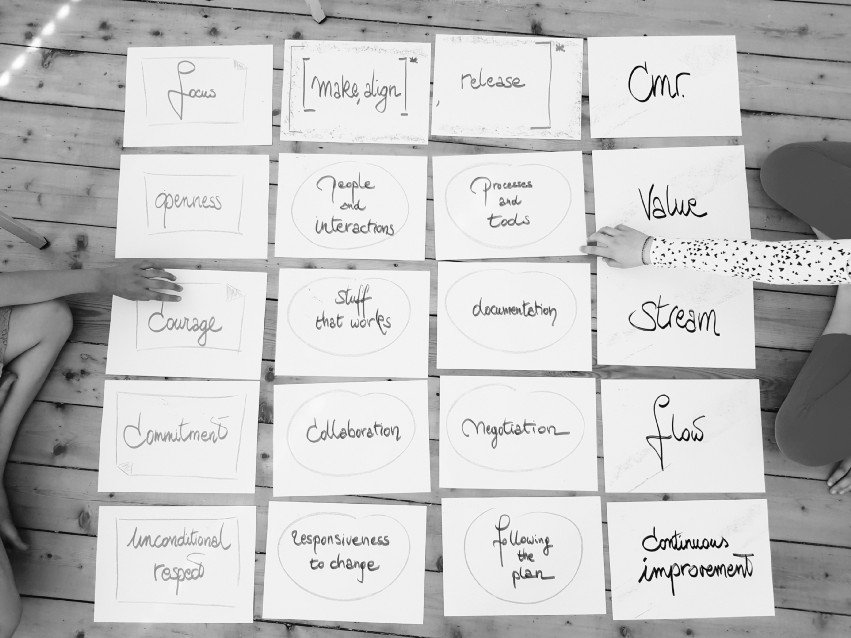 focus
[make, align]*
release]*
Cmr.
openness
People
and
interactions
Processes
and
tools
Value
Courage
Stuff
that works
documentation
Stream
Commitment
Collaboration
Negotiation
flow
Unconditional
respect
Responsiveness
to change
following
the
plan
Continuous
improvement